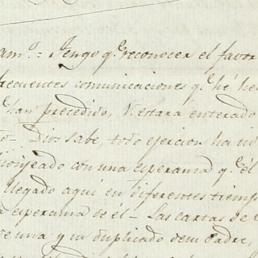 amo: Tengo q.e reconocer el favor
frecuentes comunicaciones q.e hé he
han precedido, V. estará enterado
Dios sabe, todo
con una esperanza q.e el
llegado aquí en diferentes tiemp
esperanza de él - Las cartas de
una y un duplicado de mi Padre,